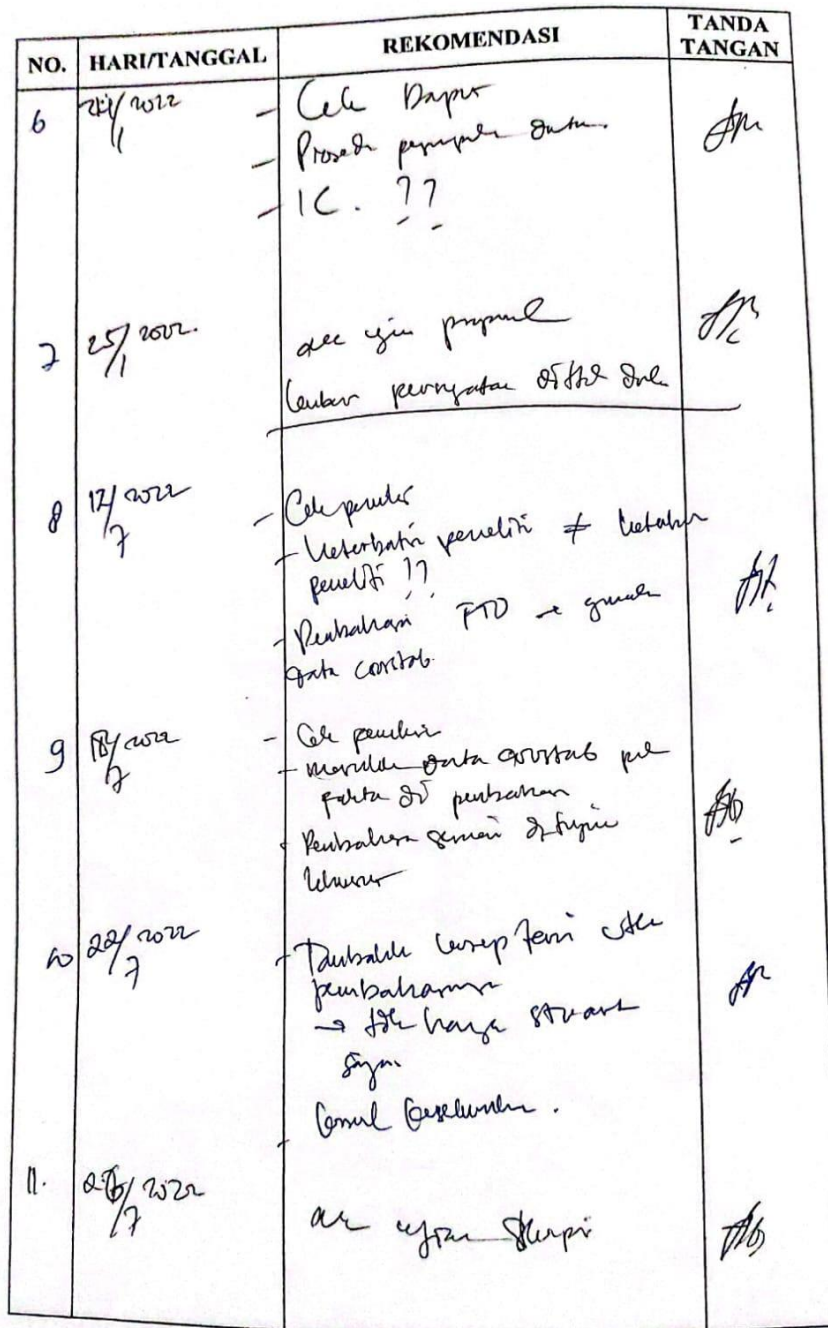 NO. HARI/TANGGAL REKOMENDASI TANDA TANGAN
6 24/1 2022 - Cek Dapus
- Prosedur pengumpulan data
- IC. ??
7 25/1 2022. acc ujian proposal
lembar pernyataan di ttd dulu
8 12/7 2022 - Cek penulisan
- Keterbatasan peneliti ≠
peneliti ??
- Pembahasan → gunakan
data crosstab
9 18/7 2022 - Cek penulisan
- masukkan data crosstab
fakta di pembahasan
- Pembahasan sesuai dg tujuan
khusus
10 22/7 2022 - Tambahkan konsep teori utk
pembahasannya
→ tdk hanya
saja.
- Consul keseluruhan.
11. 26/7 2022 acc ujian skripsi